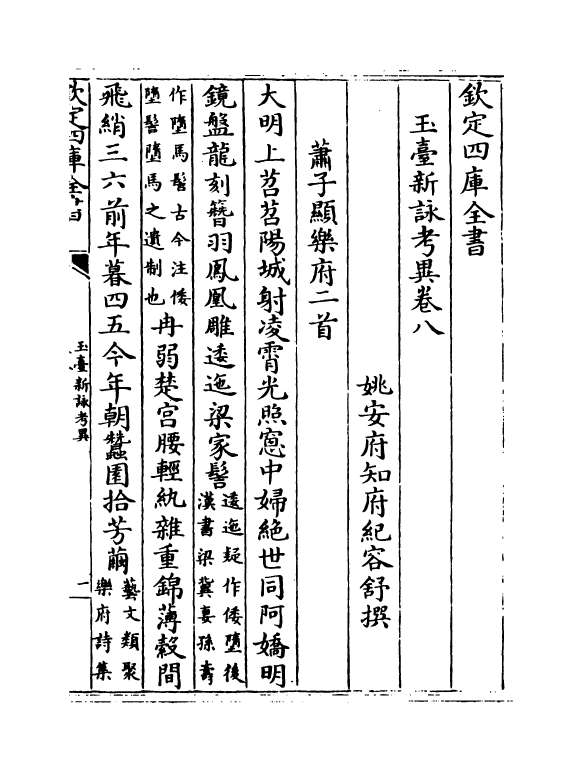 欽定四庫全書
玉臺新詠考異卷八
姚安府知府紀容舒撰
蕭子顯樂府二首
大明上苕苕陽城射凌霄光照窻中婦絶世同阿嬌明
鏡盤龍刻簪羽鳳凰雕逶迤梁家髻
逶迤疑作倭墮後
漢書梁冀妻孫壽
作墮馬髻古今注倭
墮髻墮馬之遺制也
冉弱楚宫腰輕紈雜重錦薄縠間
飛綃三六前年暮四五今年朝蠶園拾芳繭
藝文類聚
樂府詩集
欽定四庫全書
玉臺新詠考異
一